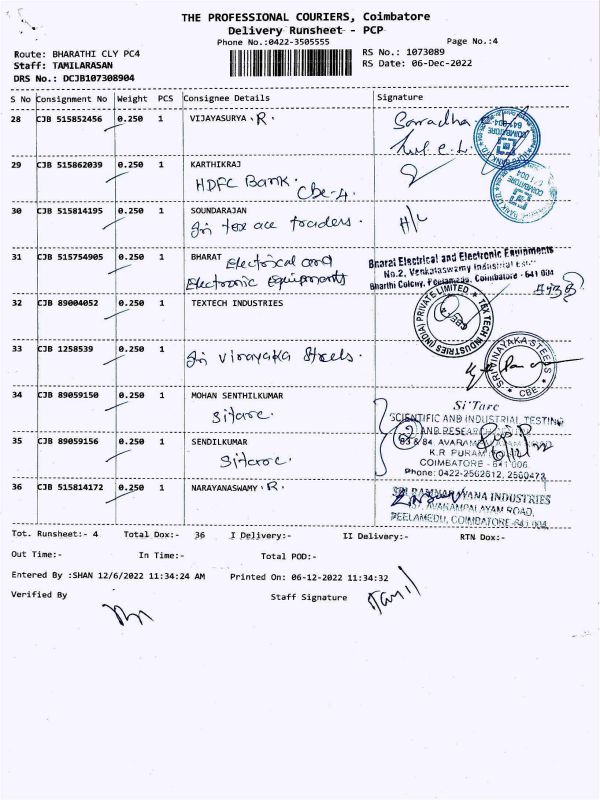 THE PROFESSIONAL COURIERS, Coimbatore
Delivery Runsheet - PCP
Phone No.:0422-3505555
Page No.:4
Route: BHARATHI CLY PC4
RS No.: 1073089
Staff: TAMILARASAN
RS Date: 06-Dec-2022
DRS No.: DCJB107308904
S No Consignment No Weight PCS Consignee Details Signature
28 CJB 515852456 0.250 1 VIJAYASURYA . R .
29 CJB 515862039 0.250 1 KARTHIKRAJ
HDFC Bank . Cbe-4.
30 CJB 515814195 0.250 1 SOUNDARAJAN H/L
Sri tex ace traders .
31 CJB 515754905 0.250 1 BHARAT Electrical and
Electronic Equipments
Bharat Electrical and Electronic Equipments
No.2, Venkataswamy Industrial
Bharthi Colony, Peelamedu, Coimbatore - 641 004
32 CJB 89004052 0.250 1 TEXTECH INDUSTRIES
TEX TECH INDUSTRIES (INDIA) PRIVATE LIMITED
33 CJB 1258539 0.250 1
Sri Vinayaka Steels .
SRI VINAYAKA STEELS
CBE
34 CJB 89059150 0.250 1 MOHAN SENTHILKUMAR
Sitarc .
Si'Tarc
SCIENTIFIC AND INDUSTRIAL TESTING
AND RESEARCH
83 & 84, AVARAMPALAYAM ROAD
35 CJB 89059156 0.250 1 SENDILKUMAR
Sitarc .
K.R PURAM
COIMBATORE - 641 006.
Phone: 0422-2562612, 2560473
36 CJB 515814172 0.250 1 NARAYANASWAMY . R .
INDUSTRIES
AVARAMPALAYAM ROAD,
PEELAMEDU, COIMBATORE-641 004
Tot. Runsheet:- 4 Total Dox:- 36 I Delivery:- II Delivery:- RTN Dox:-
Out Time:- In Time:- Total POD:-
Entered By :SHAN 12/6/2022 11:34:24 AM Printed On: 06-12-2022 11:34:32
Verified By Staff Signature
Tamil